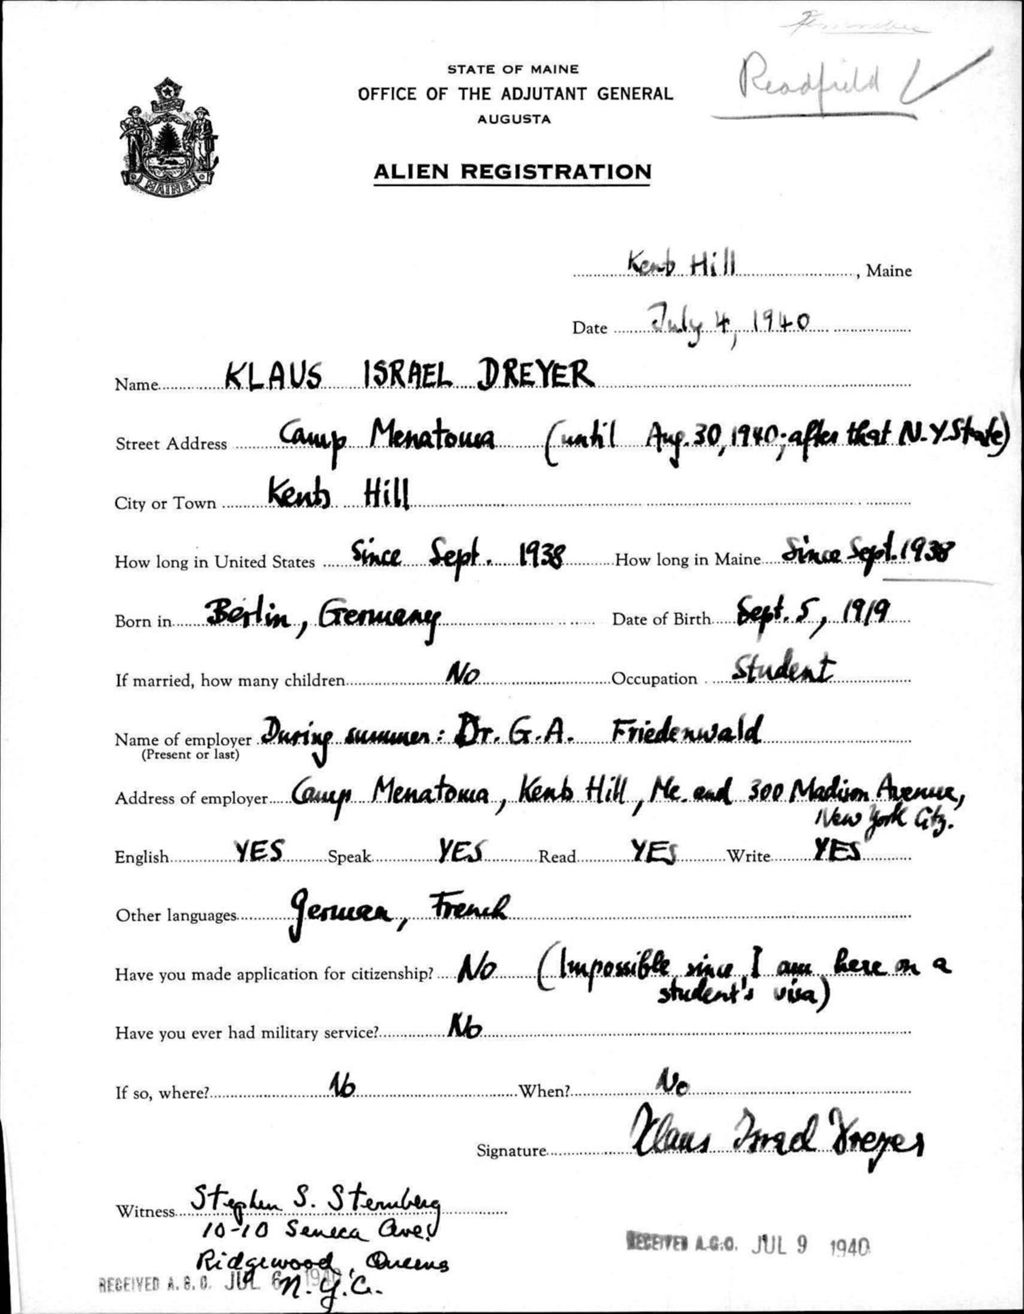 Readfield
STATE OF MAINE
OFFICE OF THE ADJUTANT GENERAL
AUGUSTA
ALIEN REGISTRATION
MAINE
Kents Hill, Maine
Date July 4, 1940
Name KLAUS ISRAEL DREYER
Street Address Camp Menatoma (until Aug. 30, 1940; after that N.Y. State)
City or Town Kents Hill
How long in United States Since Sept. 1938 How long in Maine Since Sept. 1938
Born in Berlin, Germany Date of Birth Sept. 5, 1919
If married, how many children No Occupation Student
Name of employer During summer: Dr. G. A. Friedenwald
(Present or last)
Address of employer Camp Menatoma, Kents Hill, Me. and 300 Madison Avenue,
New York City.
English YES Speak YES Read YES Write YES
Other languages German, French
Have you made application for citizenship? No (Impossible since I am here on a
student's visa)
Have you ever had military service? No
If so, where? No When? No
Signature Klaus Israel Dreyer
Witness Stephen S. Sternberg
10-10 Seneca Ave.
Ridgewood, Queens
N.Y.C.
RECEIVED A.G.O. JUL 6 1940
RECEIVED A.G.O. JUL 9 1940